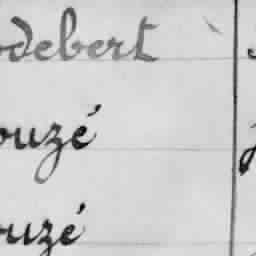 odebert
ouzé
ouzé